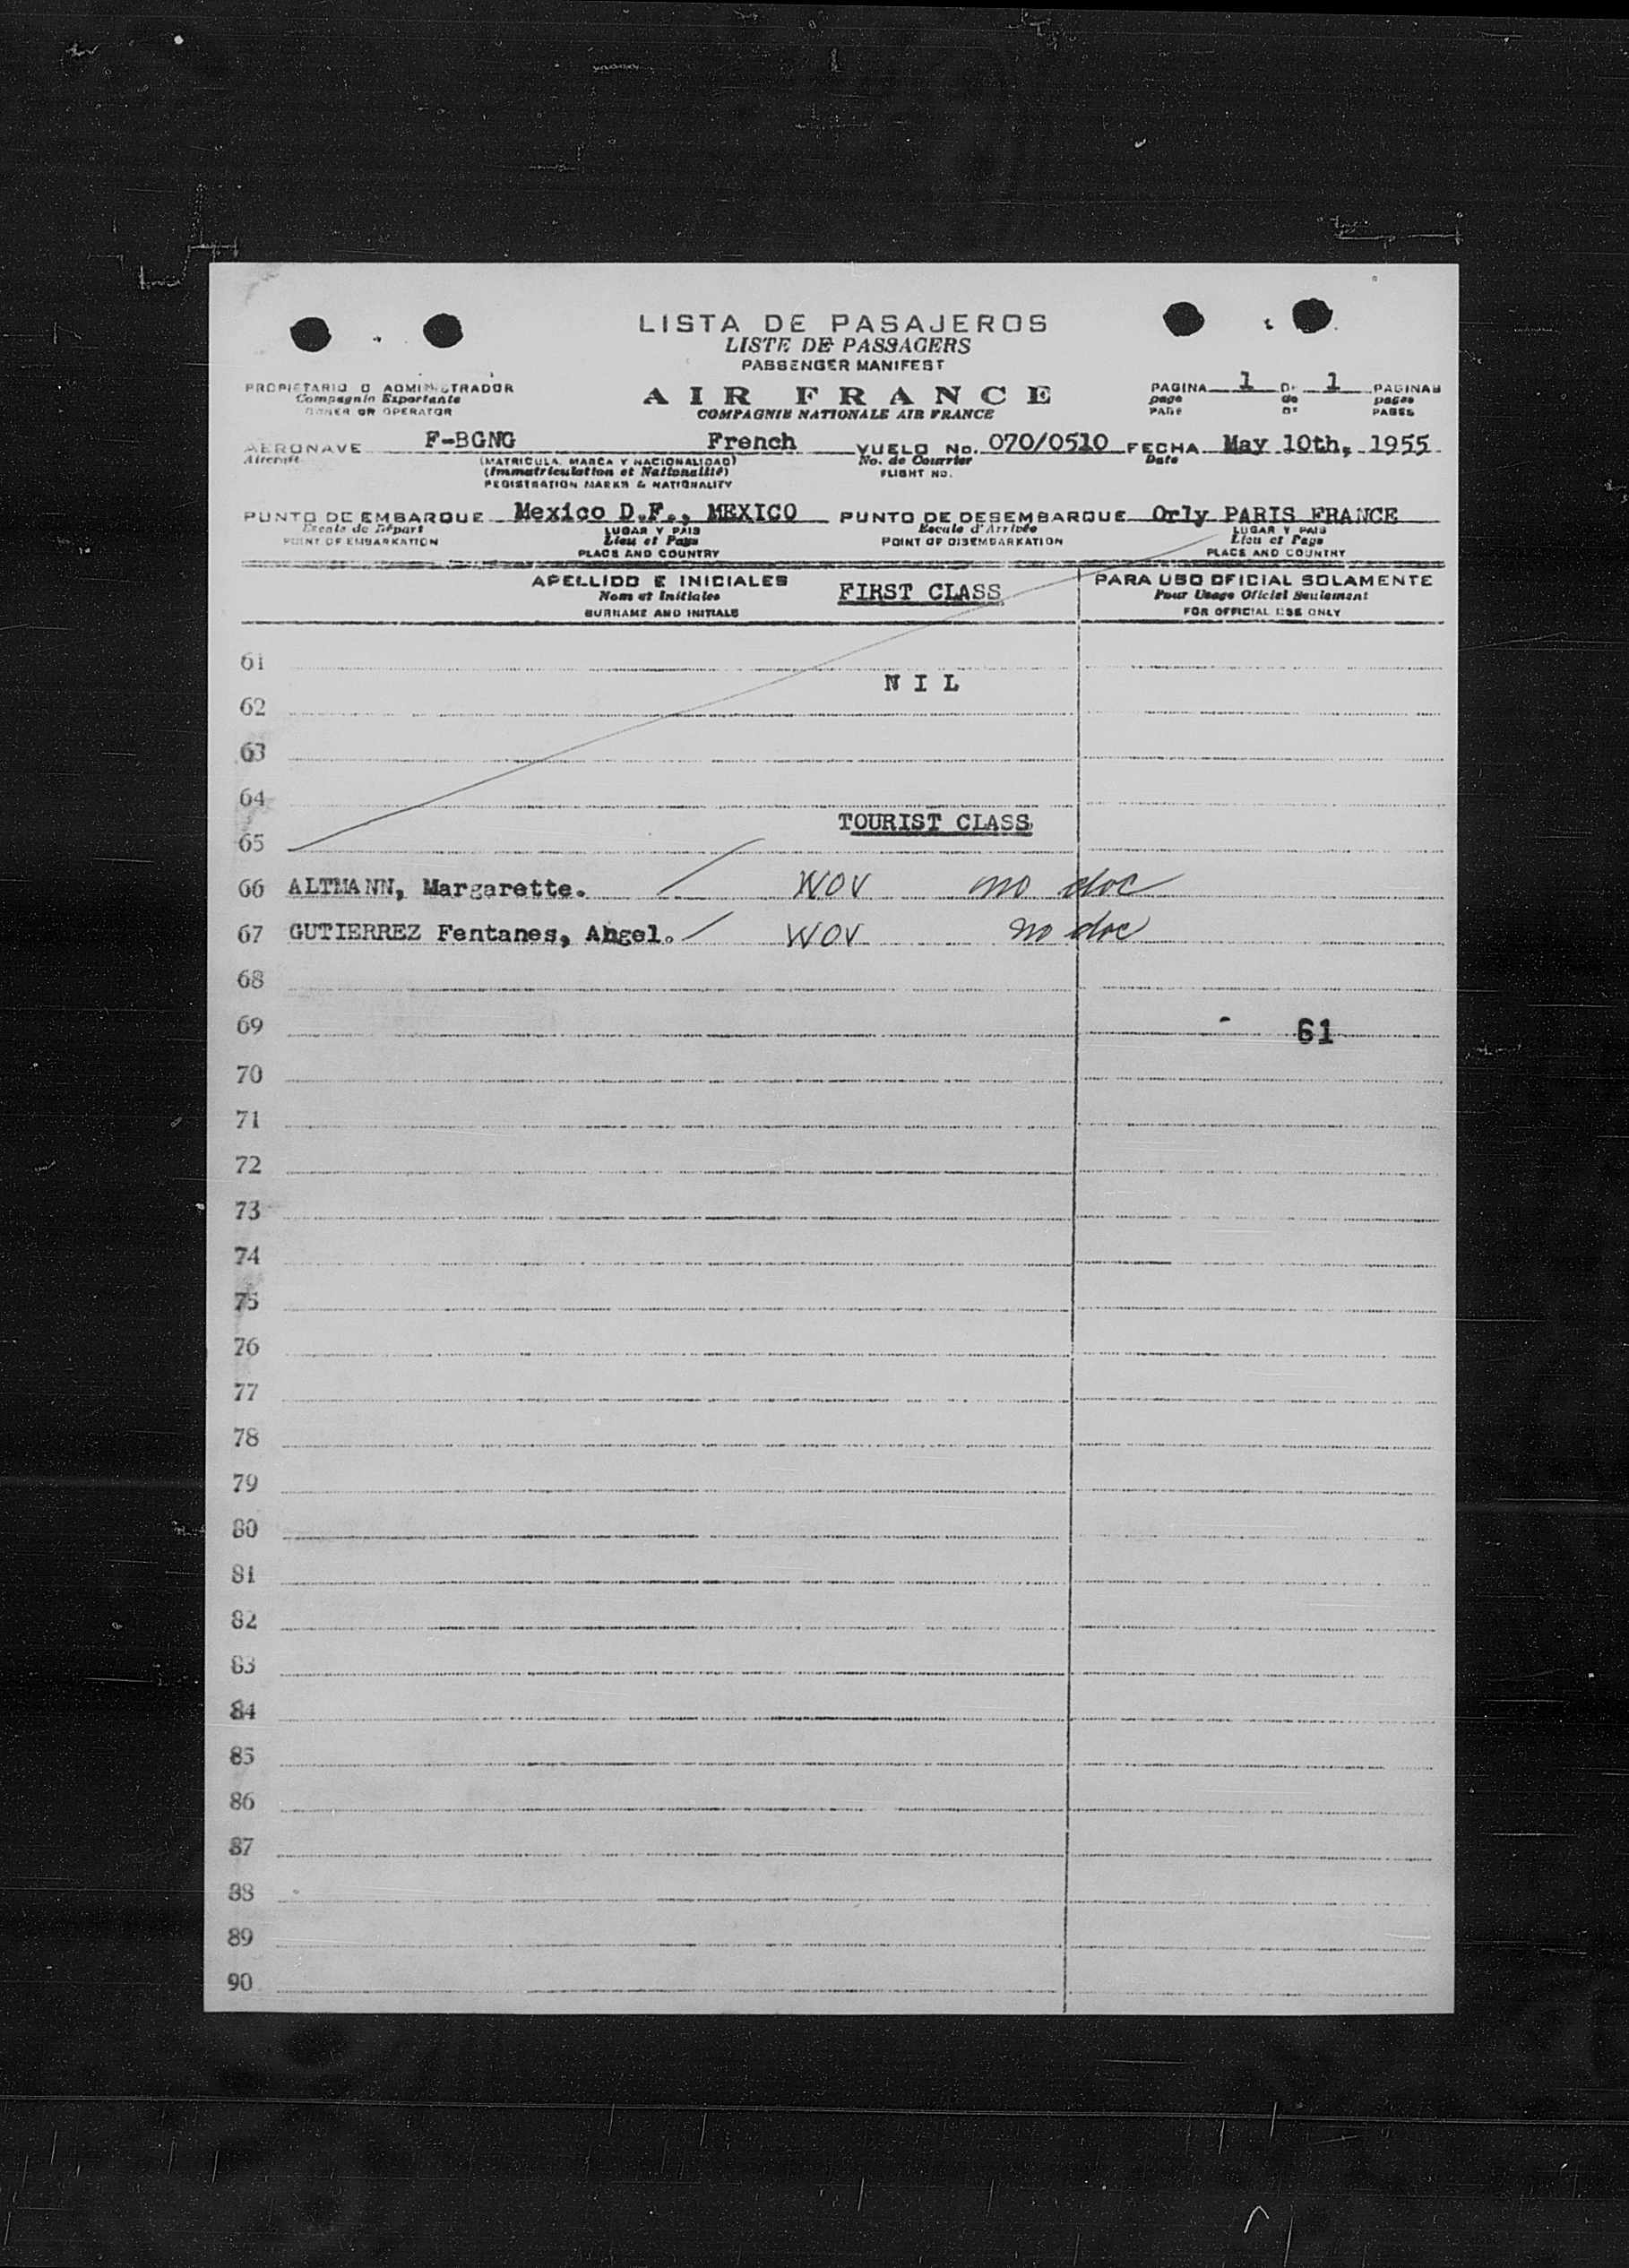 LISTA DE PASAJEROS
LISTE DE PASSAGERS
PASSENGER MANIFEST
PROPIETARIO O ADMINISTRADOR
Compagnie Exportante
OWNER OR OPERATOR
AIR FRANCE
COMPAGNIE NATIONALE AIR FRANCE
PAGINA 1 DE 1 PAGINAS
page de pages
PAGE OF PAGES
AERONAVE F-BGNG French VUELO No. 070/0510 FECHA May 10th, 1955
Aircraft (MATRICULA, MARCA Y NACIONALIDAD) No. de Courrier Date
(Immatriculation et Nationalité) FLIGHT NO.
REGISTRATION MARKS & NATIONALITY
PUNTO DE EMBARQUE Mexico D.F., MEXICO PUNTO DE DESEMBARQUE Orly PARIS FRANCE
Escale de Départ LUGAR Y PAIS Escale d'Arrivée LUGAR Y PAIS
POINT OF EMBARKATION Lieu et Pays POINT OF DISEMBARKATION Lieu et Pays
PLACE AND COUNTRY PLACE AND COUNTRY
APELLIDO E INICIALES FIRST CLASS PARA USO OFICIAL SOLAMENTE
Nom et Initiales Pour Usage Oficiel Seulement
SURNAME AND INITIALS FOR OFFICIAL USE ONLY
61
N I L
62
63
64
TOURIST CLASS
65
66 ALTMANN, Margarette. WOV no doc
67 GUTIERREZ Fentanes, Angel. WOV no doc
68
69 61
70
71
72
73
74
75
76
77
78
79
80
81
82
83
84
85
86
87
88
89
90